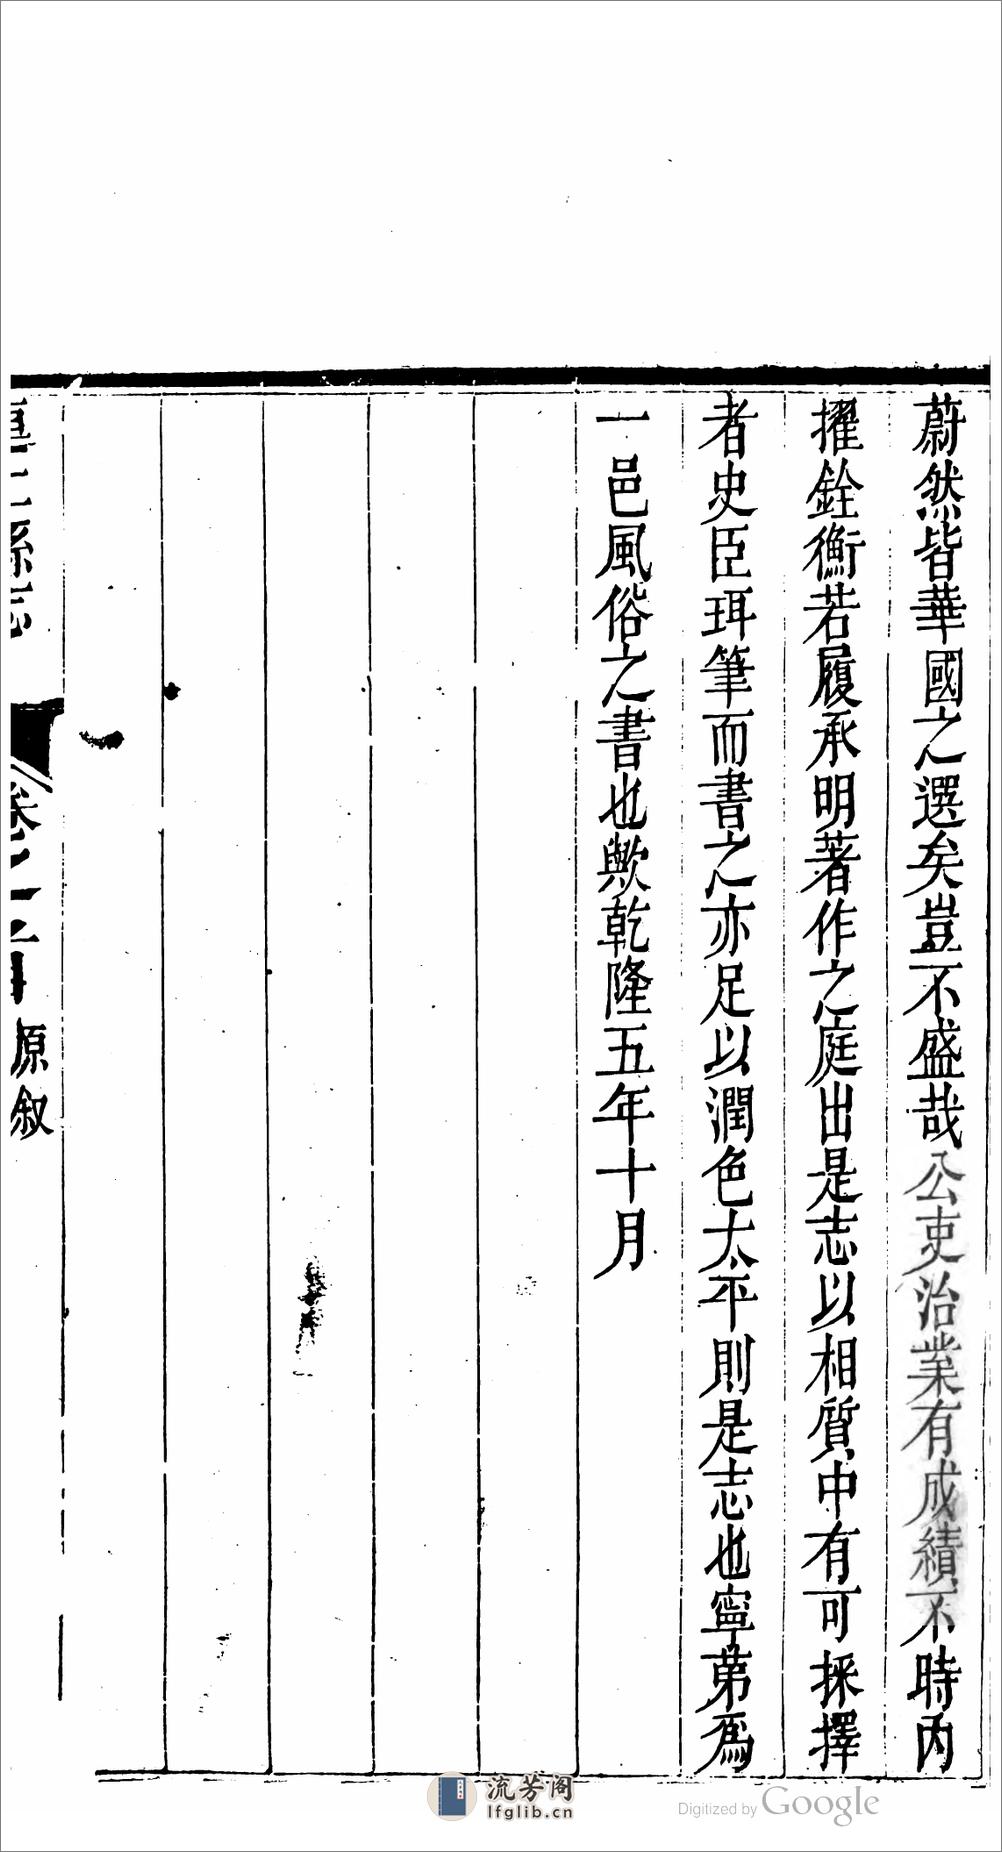 蔚然皆華國之選矣豈不盛哉公吏治業有成績不時內
擢銓衡若履承明著作之庭出是志以相質中有可採擇
者史臣珥筆而書之亦足以潤色太平則是志也寧第為
一邑風俗之書也歟乾隆五年十月
縣志 卷之 原叙
流芳阁
lfglib.cn
Digitized by Google